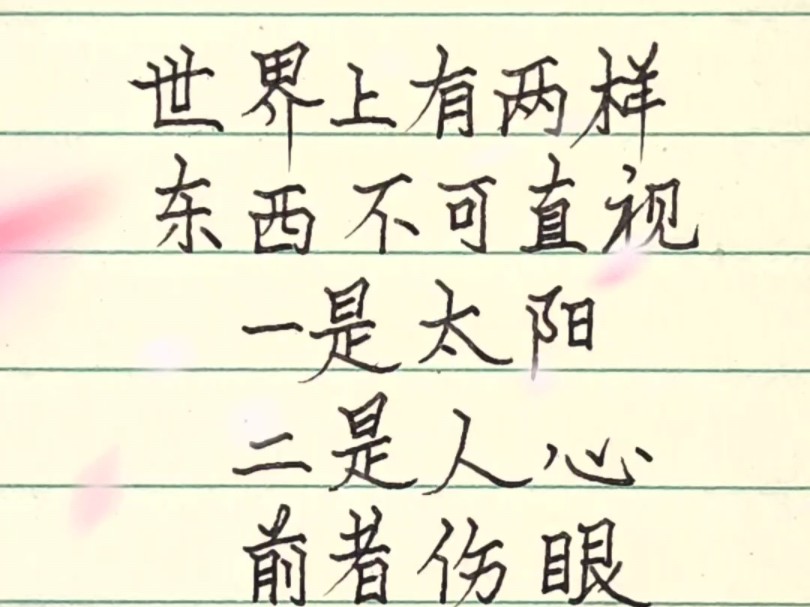 世界上有两样
东西不可直视
一是太阳
二是人心
前者伤眼